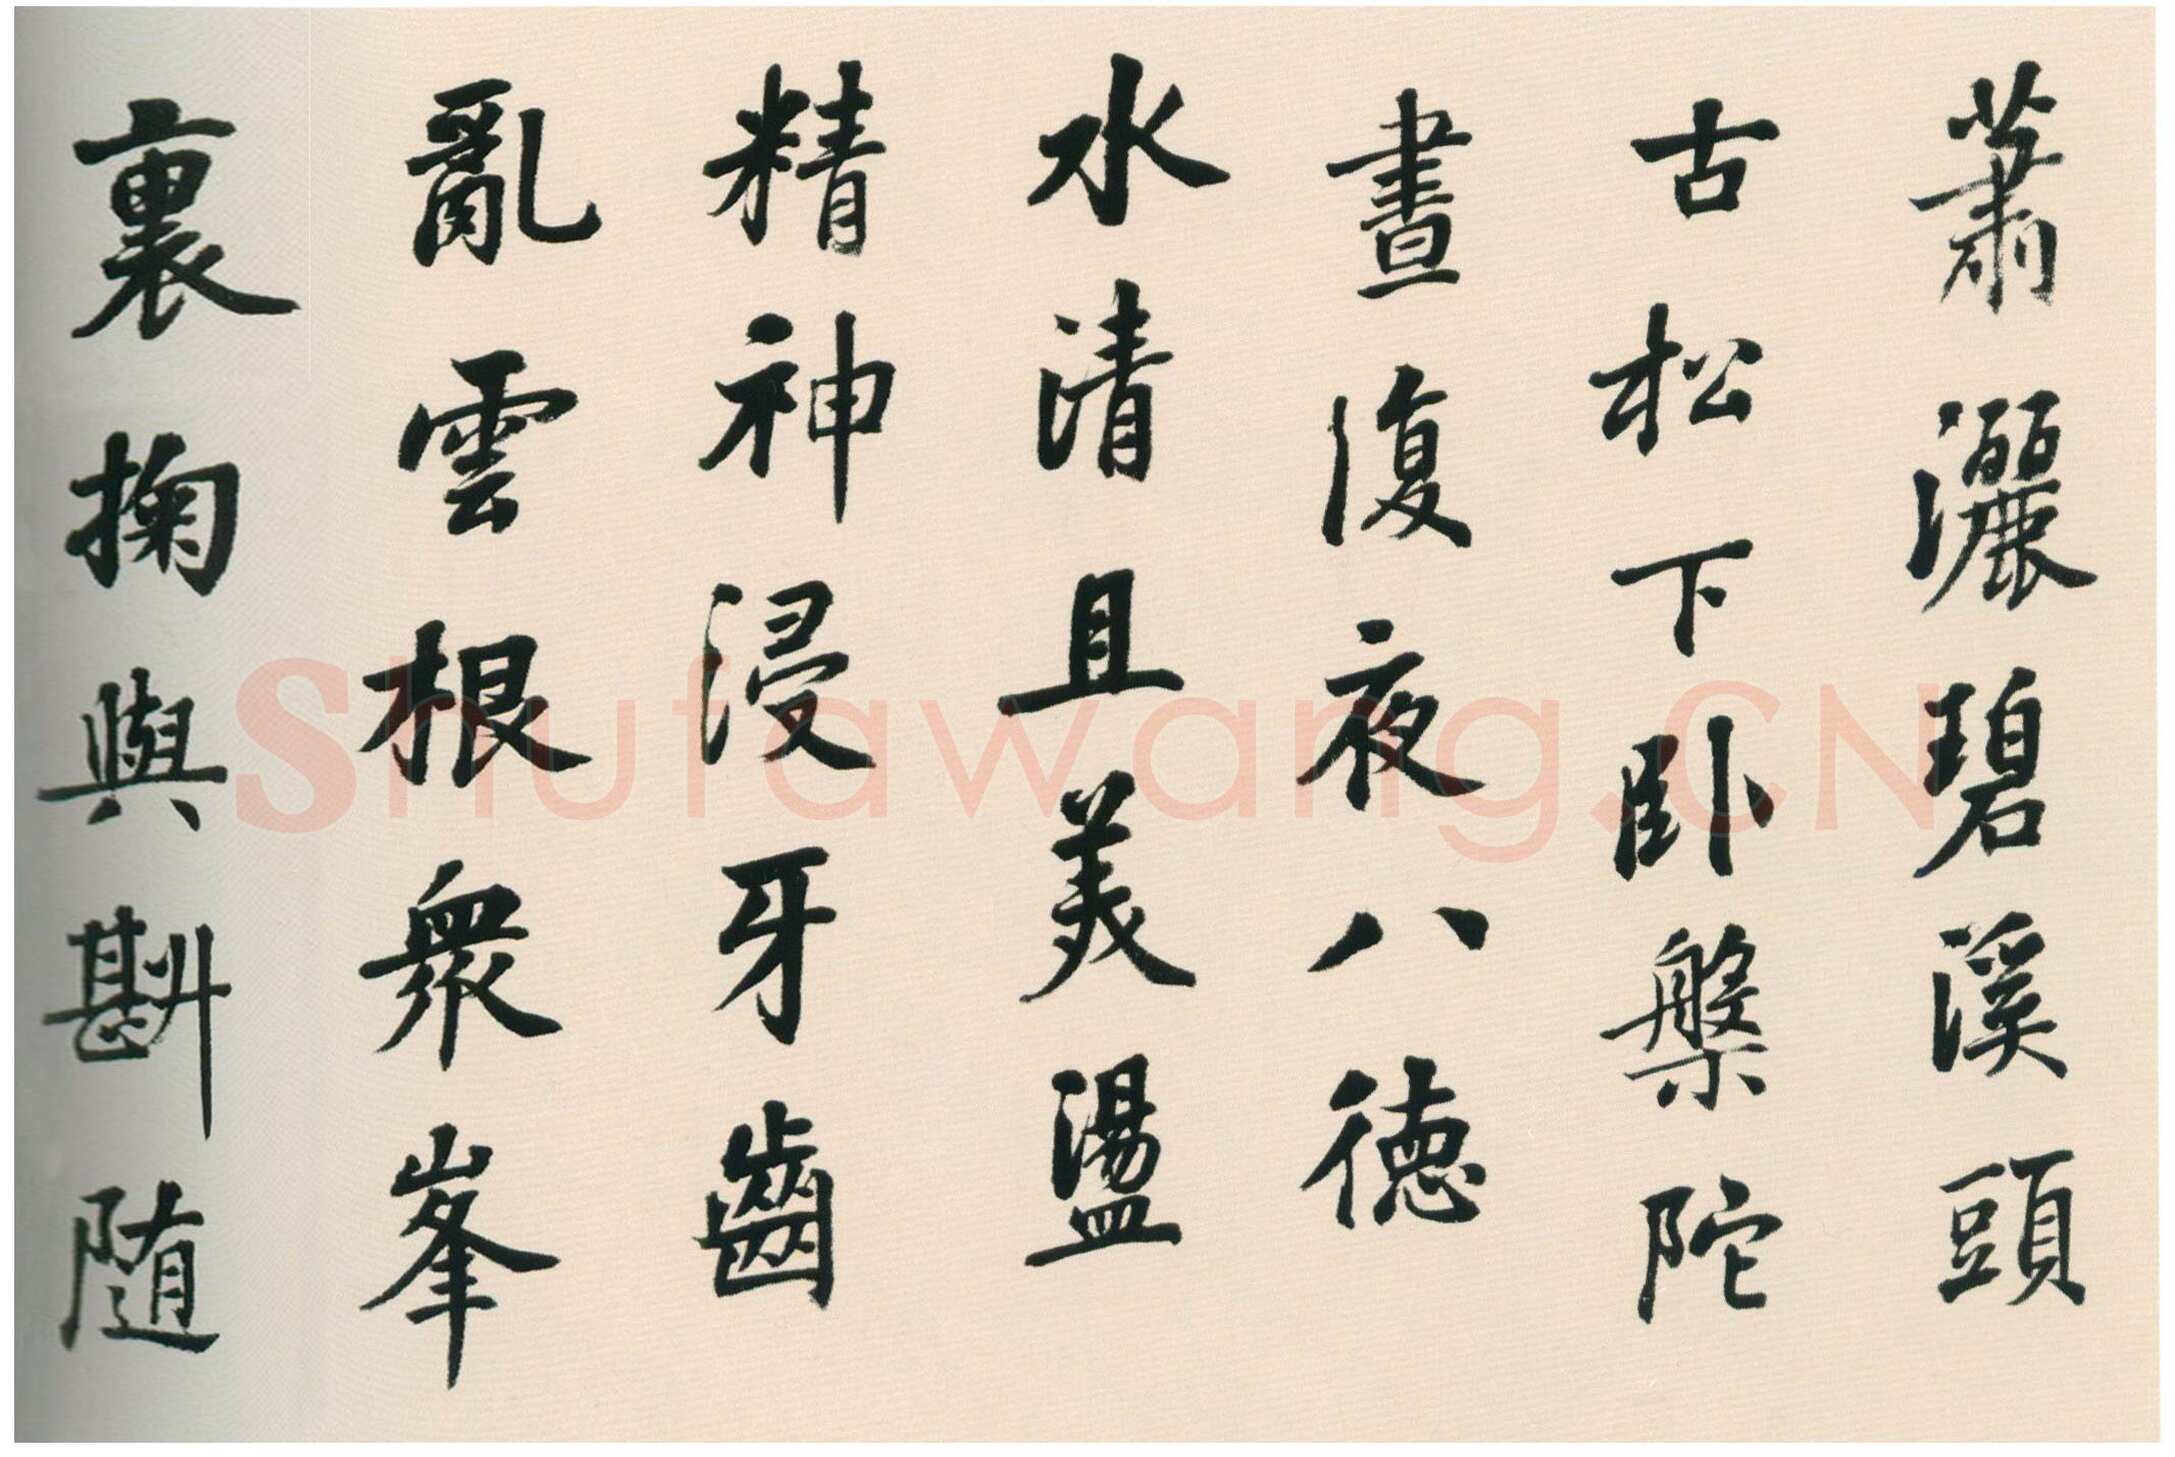 蕭灑碧溪頭
古松下卧槃陀
晝復夜八德
水清且美盪
精神浸牙齒
亂雲根衆峯
裏掬與斟隨
Shufawang.CN